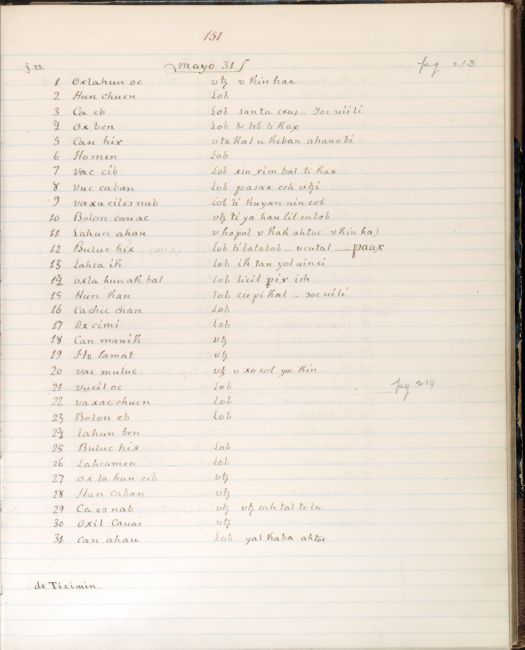 151
f. 22. mayo 31 pg 213
1 Oxlahun oc utz u kin haa
2 Hun chuen Lob
3 Ca eb Lob santa crus _ yoc uil ti
4 Ox ben Lob ti kax
5 Can hix u kal u keban ahauobi
6 Ho men Lob
7 Vac cib Lob xin xim bal ti kax
8 Vuc caban Lob pasax ceh
9 vaxacil es nab Lob ti kuyan uin cob
10 Bolon cauac utz ti ya hau lil cabob
11 Lahun ahau u hopol u kak ahtoc u kin ha)
12 Buluc hix Lob ti batabob _ u cutal _ paax
13 Lahca ik Lob ik tan yol uinci
14 oxla hun ak bal Lob licil pix ich
15 Hun kan Lob cu pi kal _ yoc uil ti
16 Ca chic chan Lob
17 Ox cimi Lob
18 Can manik utz
19 Ho lamat utz
20 vac muluc utz u xo col ya kin
21 vucil oc Lob pg 214
22 vaxac chuen Lob
23 Bolon eb Lob
24 Lahun ben
25 Buluc hix Lob
26 Lahcamen Lob
27 ox la hun cib utz
28 Hun caban utz
29 Ca es nab utz utz cah tal
30 Oxil Cauac utz
31 Can ahau Lob yal kaba ahtoc
de Tizimin.